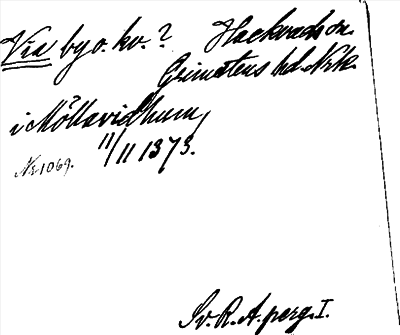 Via by o. kv.? Hackvads sn.
Grimstens hd. Nrk.
i Möllavidhum
11/11 1373.
Nr 1069.
Sv. R. A. perg. I.